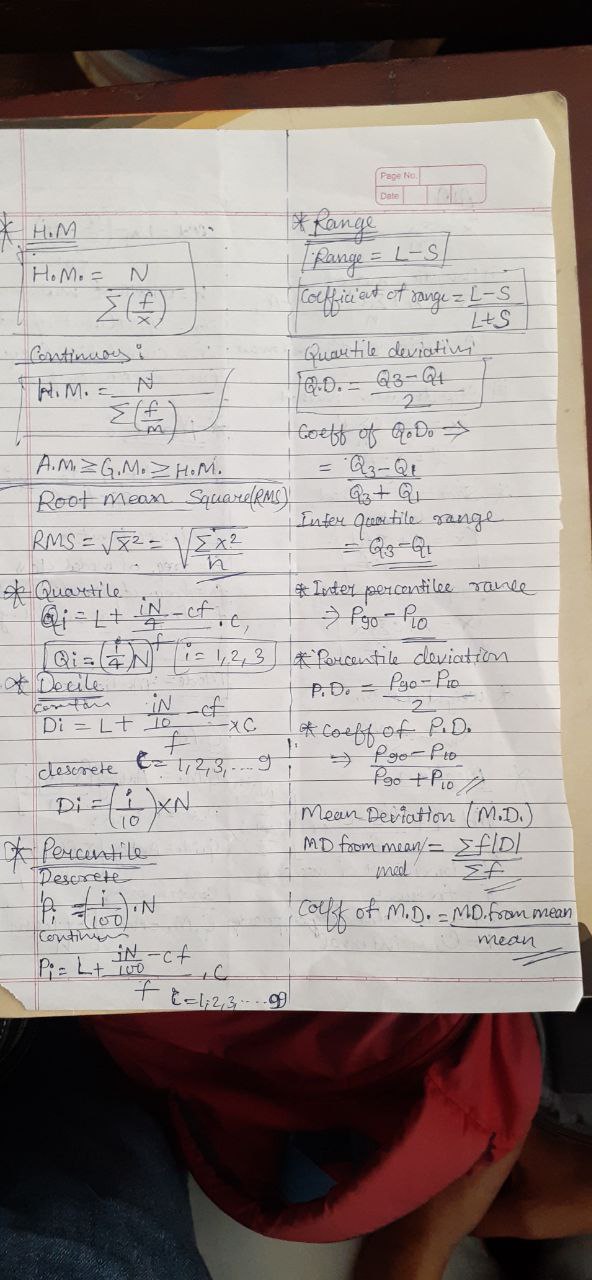 Page No.
Date
* H.M
H.M. = N / Σ(f/x)
Continuous :
H.M. = N / Σ(f/m)
A.M. ≥ G.M. ≥ H.M.
Root Mean Square(RMS)
RMS = √x̄² = √(Σx²/n)
* Quartile
Qi = L + (iN/4 - cf)/f . C,
Qi = (i/4)N i = 1, 2, 3
* Decile
Di = L + (iN/10 - cf)/f × C
descrete i = 1, 2, 3, .... 9
Di = (i/10) × N
* Percentile
Descrete
Pi = (i/100) . N
Pi = L + (iN/100 - cf)/f . C
i = 1, 2, 3, .... 99
* Range
Range = L - S
Coefficient of range = (L - S)/(L + S)
Quartile
Q.D. = (Q3 - Q1)/2
Coeff of Q.D. ⇒
= (Q3 - Q1)/(Q3 + Q1)
Inter quartile range
= Q3 - Q1
* Inter percentilee range
⇒ P90 - P10
* Percentile deviation
P.D. = (P90 - P10)/2
* Coeff of P.D.
⇒ (P90 - P10)/(P90 + P10)
Mean Deviation (M.D.)
MD from mean/med = Σf|D| / Σf
Coeff of M.D. = MD.from mean / mean